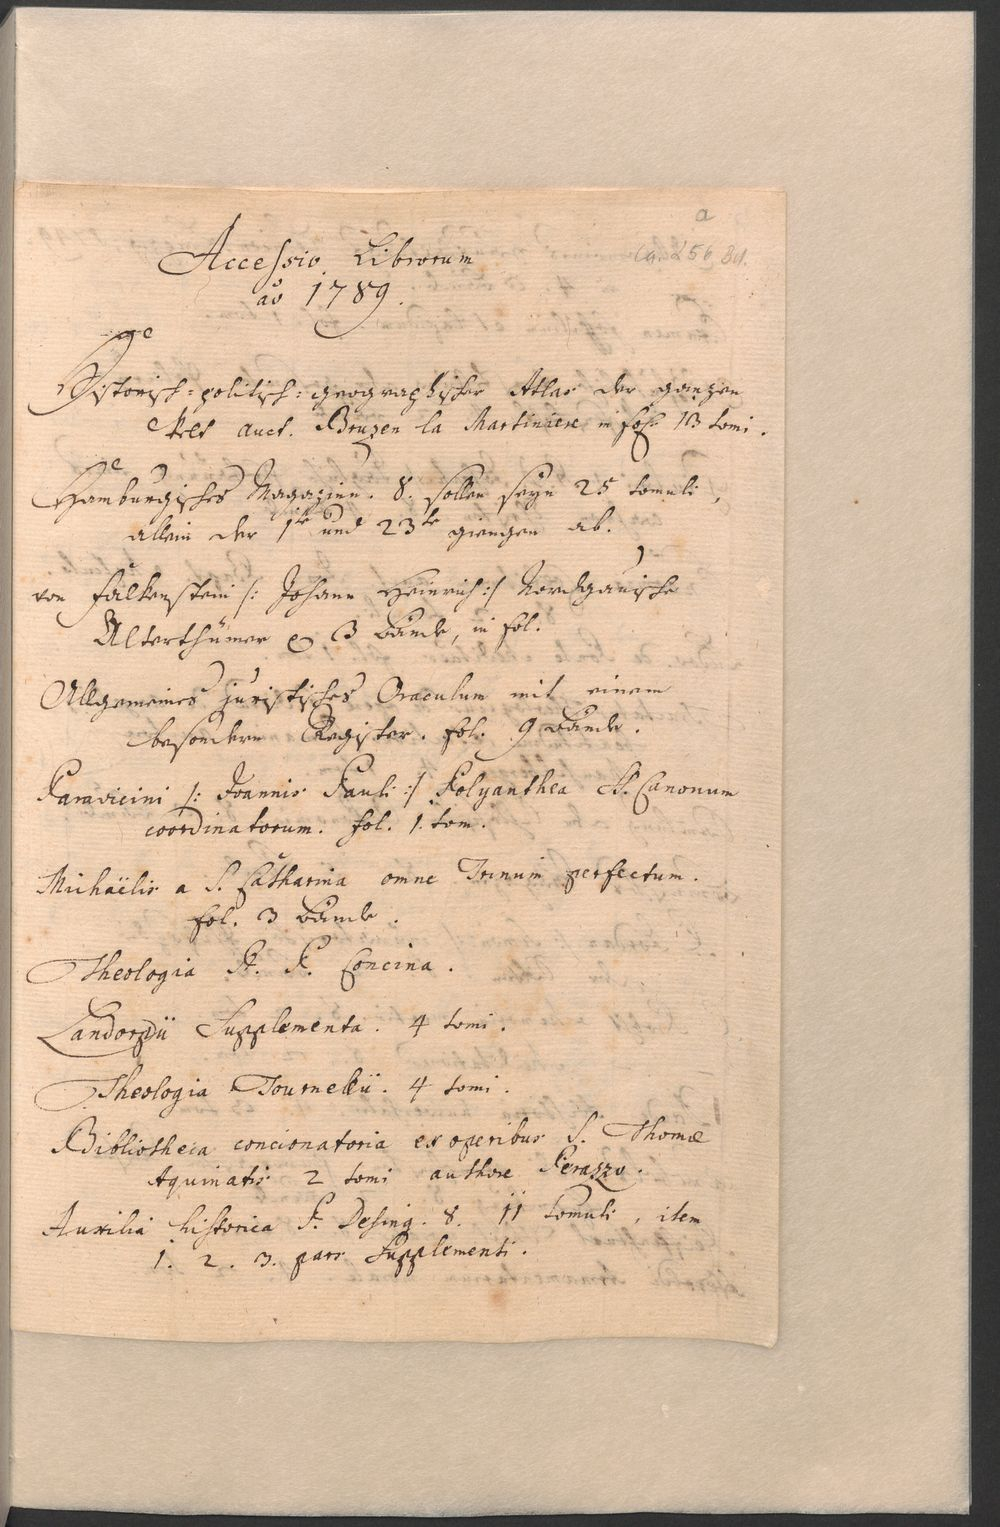 a
Ca. 256 Bd.
Accessio Librorum
ao 1789.
Historisch-politisch-geographischer Atlas der ganzen
Welt auct. Bruzen la Martiniere in fol. 13 tomi.
Hamburgisches Magazinn. 8. sollen seyn 25 tomuli,
allein der 1te und 23te giengen ab.
von Falkenstein /: Johann Heinrich :/ Nordgauische
Alterthümer 3 Bände, in fol.
Allgemeines juristisches Oraculum mit einem
besondern Register. fol. 9 Bände.
Paravicini /: Joannis Pauli :/ Polyanthea SS. Canonum
coordinatorum. fol. 1. tom.
Michaëlis a S. Catharina omne Trinum perfectum.
fol. 3 Bände.
Theologia P. Concina.
Landorpii Supplementa. 4 tomi.
Theologia Tournelii. 4 tomi.
Bibliotheca concionatoria ex operibus S. Thomæ
Aquinatis 2 tomi authore Perazzo.
Auxilia historica P. Desing. 8. 11 tomuli, item
1. 2. 3. pars Supplementi.